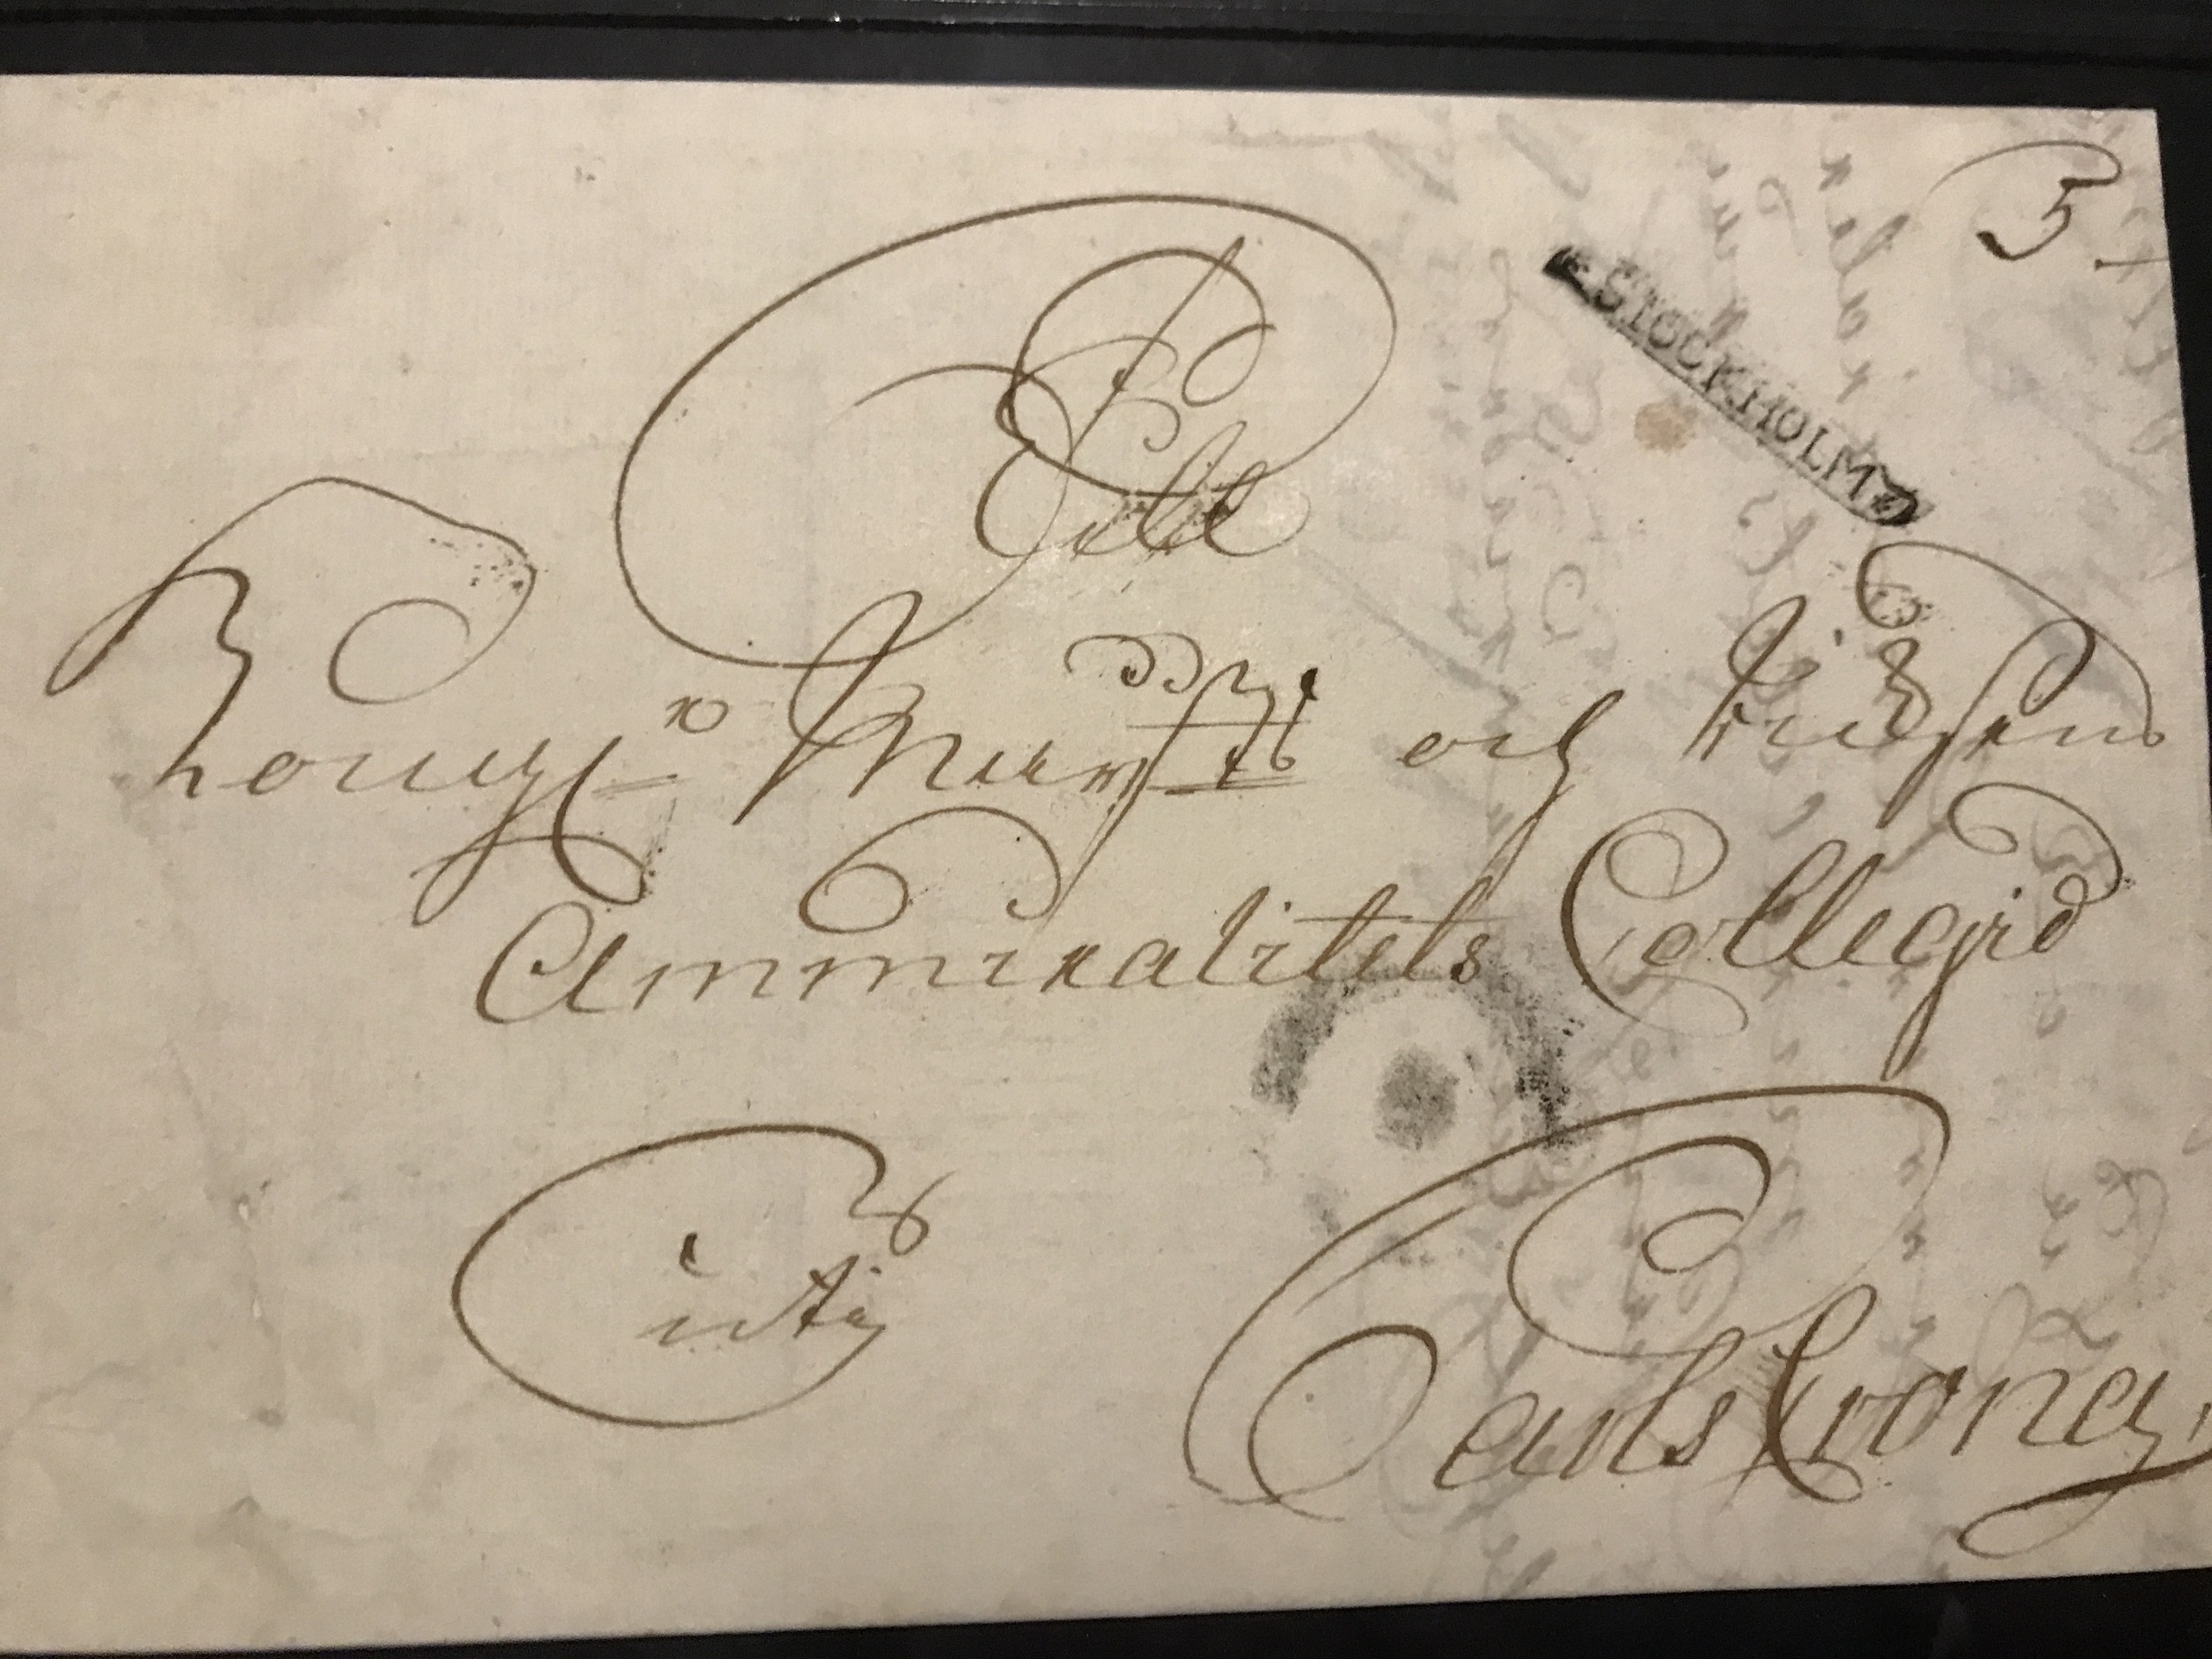 5
STOCKHOLM
Till
Kongl. Maij:ts och Riksens
Ammiralitets Collegio
uti
Carlscrona